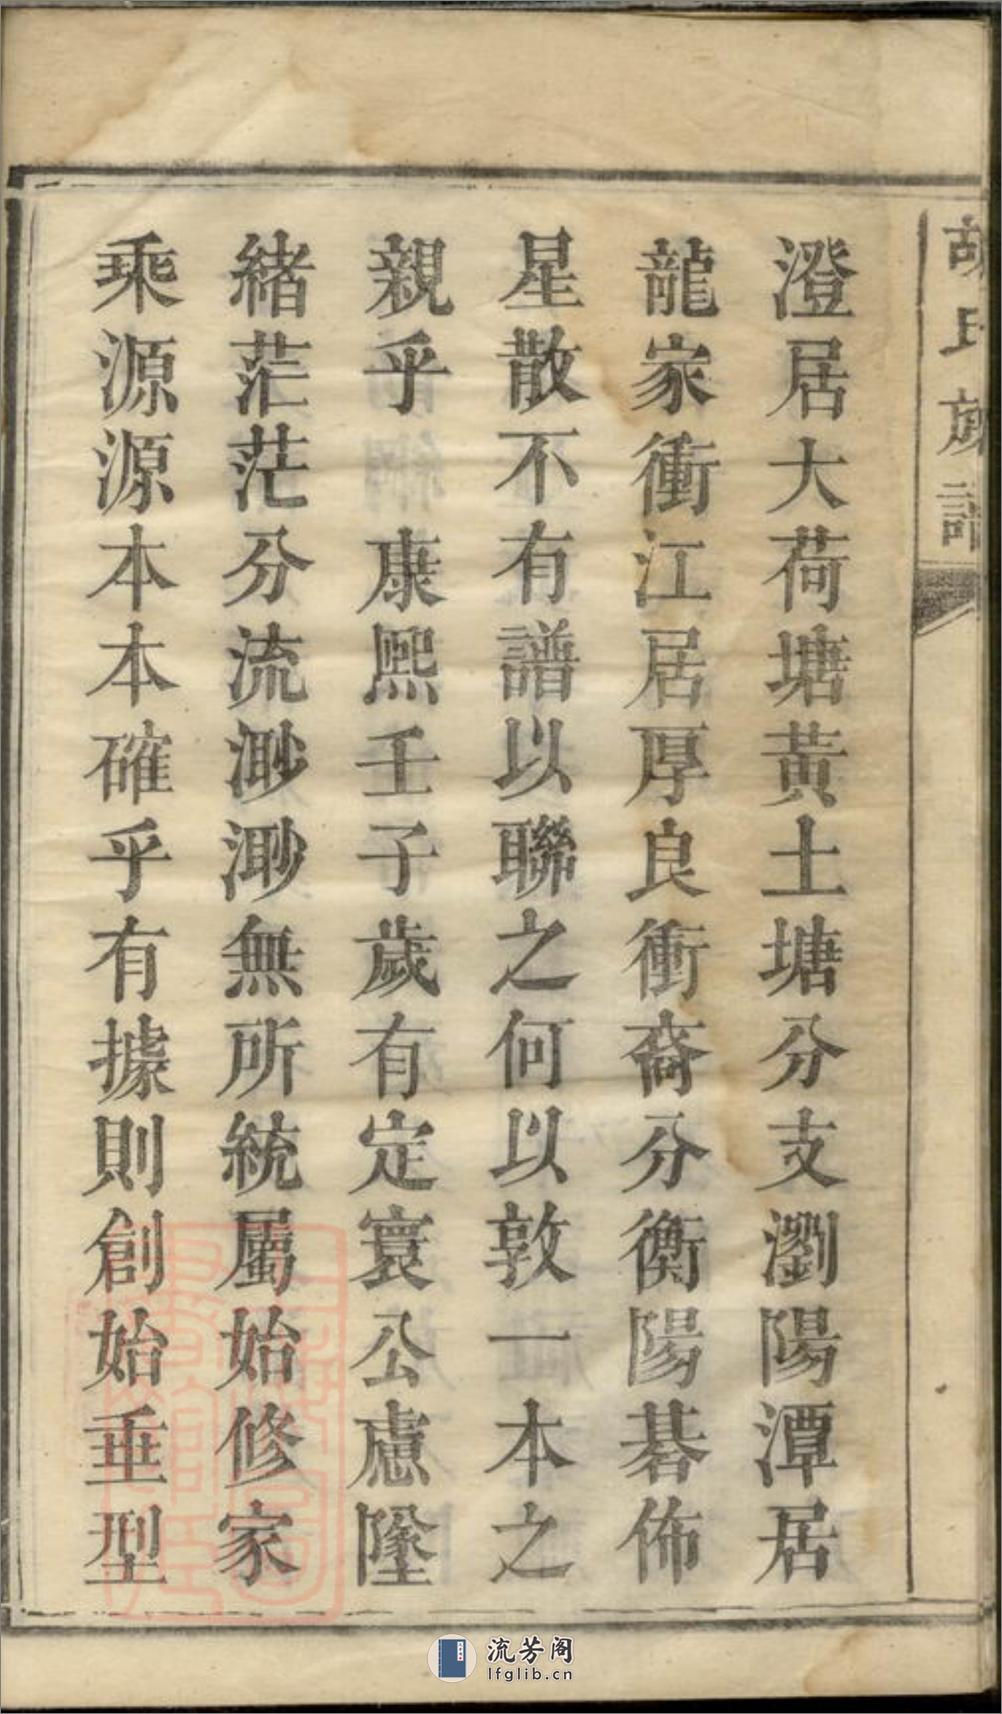 胡氏族譜
澄居大荷塘黃土塘分支瀏陽潭居
龍家衝江居厚良衝裔分衡陽碁佈
星散不有譜以聯之何以敦一本之
親乎康熙壬子歲有定寰公慮隆
緒茫茫分流渺渺無所統屬始修家
乘源源本本確乎有據則創始垂型
流芳阁
lfglib.cn